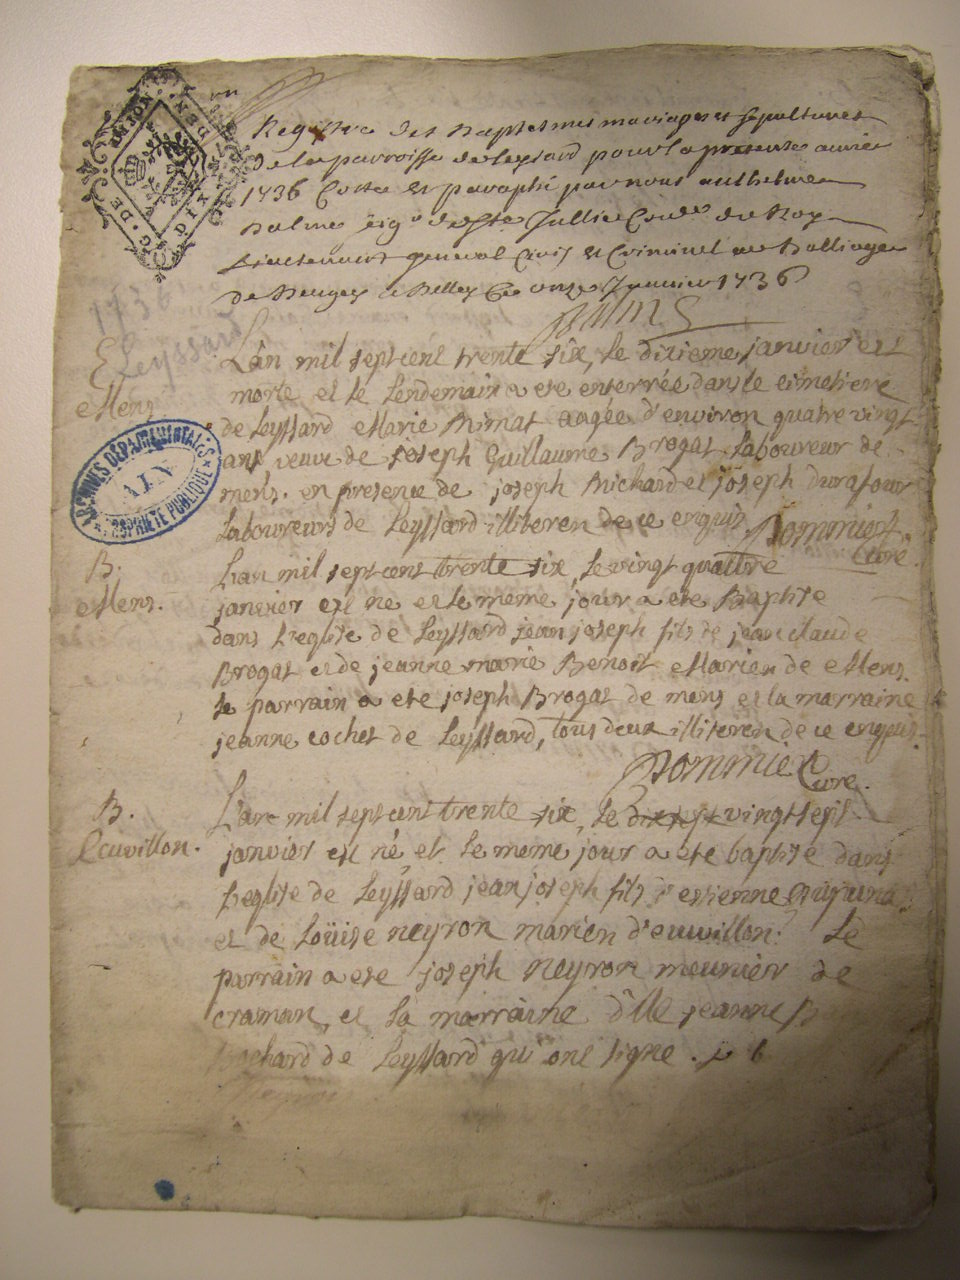 G. DE DIJON DEN
Registre des baptesmes mariages et sepultures
de la parroisse de Leyssard pour la presente année
1736 Cotté et paraphé par nous anthelme
Balme de Ste Jullie Conser du Roy
Lieutenant general Civil et Criminel au Balliage
de Beugey a Belley Ce onze Janvier 1736
Balme
1736
Leyssard
E
Mens
ARCHIVES DÉPARTEMENTALES
AIN
PROPRIÉTÉ PUBLIQUE
L'an mil sept cent trente six, le dixieme janvier est
morte et le lendemain a ete enterrée dans le cimetiere
de Leyssard Marie aagée d'environ quatre vingt
ans veuve de joseph Guillaume Brogat Laboureur de
mens. en presence de joseph Michard et joseph Durafour
Laboureurs de Leyssard illiteren de ce enquis Pommier
Curé.
B.
Mens.
L'an mil sept cent trente six, le vingt quattre
janvier est né et le meme jour a ete Baptisé
dans l'eglise de Leyssard jean joseph fils de jean claude
Brogat et de jeanne marie Benoit Marien de Mens.
le parrain a ete joseph Brogat de mens et la marraine
jeanne cochet de Leyssard, tous deux illiteren de ce enquis.
Pommier Curé.
B.
Leuvillon.
L'an mil sept cent trente six, le vingt sept
janvier est né et le meme jour a ete baptisé dans
l'eglise de Leyssard jean joseph fils d'estienne
et de Loüise neyron marien d'euvillon. Le
parrain a ete joseph neyron meunier de
craman, et la marraine dlle jeanne
de Leyssard qui ont signé.